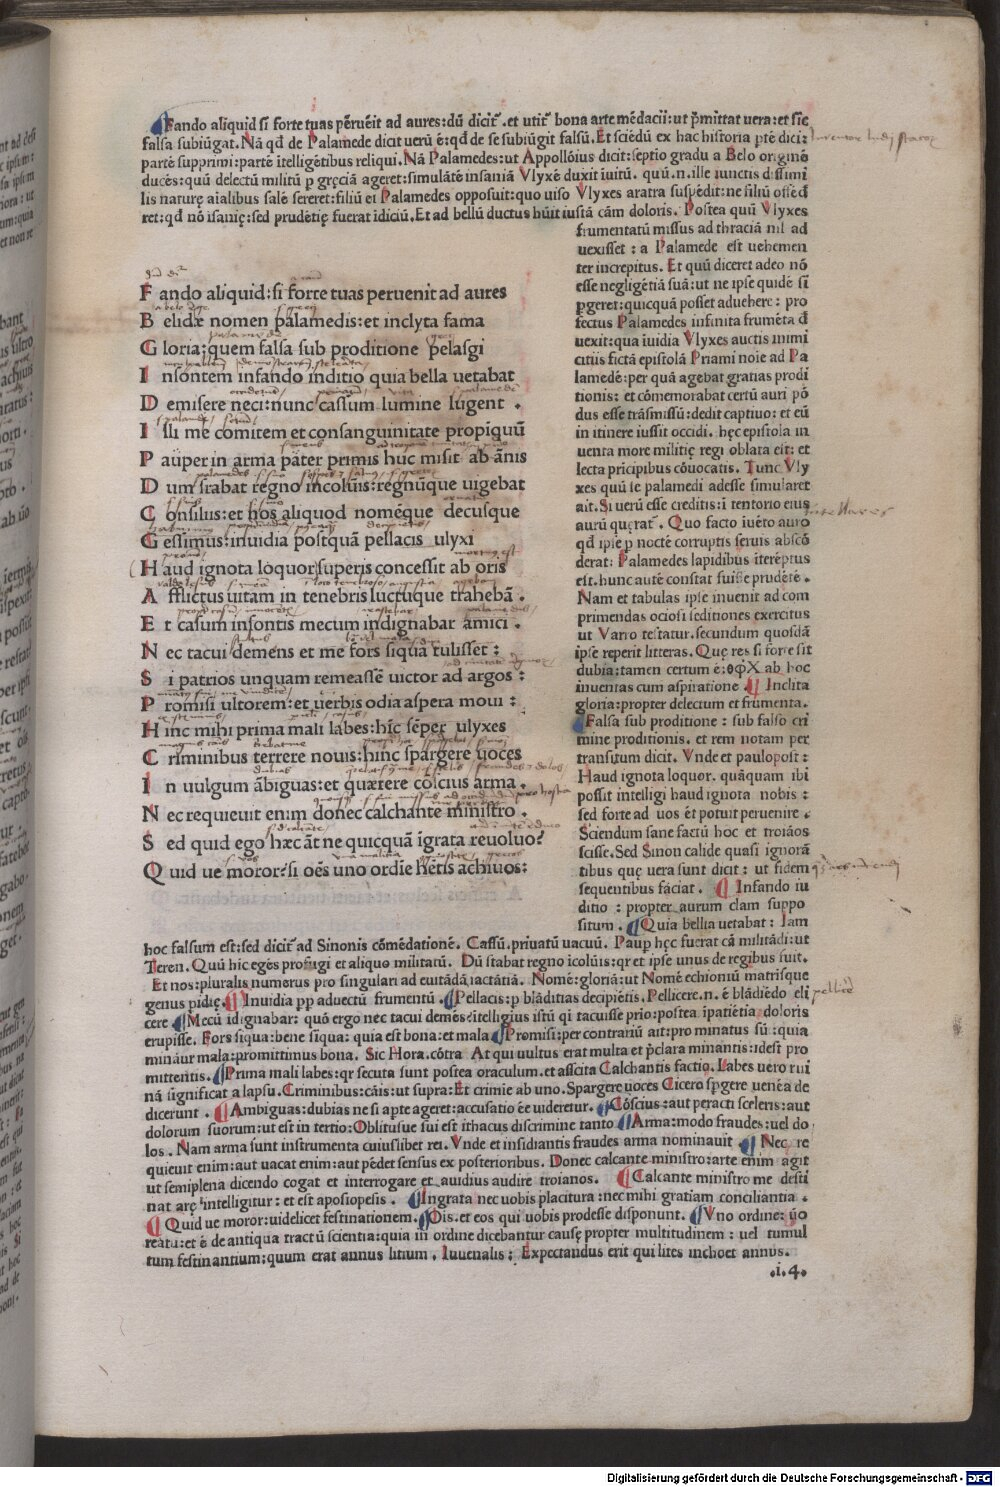 Fando aliquid si forte tuas ꝑuēit ad aures: dū dicit᷑ . et utit᷑ bona arte mēdacii: ut p̄mittat uera: et sic
falsa subiūgat. Nā qđ de Palamede dicit uerū ē: qđ de se subiūgit falsū. Et sciēdū ex hac historia ꝑtē dici:
partē supprimi: partē ītelligētibus reliqui. Nā Palamedes: ut Appollōius dicit: septīo gradu a Belo originē
ducēs: quū delectū militū p gręciā ageret: simulātē insaniā Vlyxē duxit īuitū. quū .n. ille iunctis dissimi
lis naturę aīalibus salē sereret: filiū ei Palamedes opposuit: quo uiso Vlyxes aratra suspēdit: ne filiū offēđ
ret: qđ nō īsanię: sed prudētię fuerat īdiciū. Et ad bellū ductus hūit iustā cām doloris. Postea quū Vlyxes
frumentatū missus ad thraciā nil ad
uexisset : a Palamede est uehemen
ter increpitus. Et quū diceret adeo nō
esse negligētiā suā: ut ne ipse quidē si
ꝑgeret: quicquā posset aduehere: pro
fectus Palamedes infinita frumēta đ
uexit: qua īuidia Vlyxes auctis inimi
citiis fictā epistolā Priami noīe ad Pa
lamedē: per quā agebat gratias prodi
tionis: et cōmemorabat certū auri pō
dus esse trāsmissū: dedit captiuo: et eū
in itinere iussit occidi. hęc epistola in
uenta more militię regi oblata est: et
lecta prīcipibus cōuocatis. Tunc Vly
xes quū se palamedi adesse simularet
ait. Si uerū esse creditis: ī tentorio eius
aurū querat᷑ . Quo facto īuēto auro
qđ ipse p noctē corruptis seruis abscō
derat: Palamedes lapidibus īterēptus
est. hunc autē constat fuisse prudētē .
Nam et tabulas ipse inuenit ad com
primendas ociosi seditiones exercitus
ut Varro testatur. secundum quosdā
ipse reperit litteras. Quę res si forte sit
dubia: tamen certum ē: θφχ ab hoc
inuentas cum aspiratione . Inclita
gloria: propter delectum et frumenta.
Falsa sub proditione : sub falso cri
mine proditionis. et rem notam per
transitum dicit. Vnde et paulopost :
Haud ignota loquor. quāquam ibi
possit intelligi haud ignota nobis :
sed forte ad uos ēt potuit peruenire .
Sciendum sane factū hoc et troiāos
scisse. Sed Sinon calide quasi ignorā
tibus quę uera sunt dicit : ut fidem
sequentibus faciat . Infando iu
ditio : propter aurum clam suppo
situm . Quia bella uetabat : Iam
F ando aliquid: si forte tuas peruenit ad aures
B elidæ nomen palamedis: et inclyta fama
G loria: quem falsa sub proditione pelasgi
I nsontem infando inditio quia bella uetabat
D emisere neci: nunc cassum lumine lugent .
I lli me comitem et consanguinitate propīquū
P auper in arma pater primis huc misit ab ānis
D um stabat regno incolūis: regnūque uigebat
C onsiliis: et nos aliquod nomēque decusque
G essimus: inuidia postquā pellacis ulyxi
H aud ignota loquor superis concessit ab oris
A fflictus uitam in tenebris luctuque trahebā
E t casum insontis mecum indignabar amici .
N ec tacui demens et me fors siqua tulisset :
S i patrios unquam remeassē uictor ad argos :
P romisi ultorem: et uerbis odia aspera moui :
H inc mihi prima mali labes: hīc sēper ulyxes
C riminibus terrere nouis: hinc spargere uoces
I n uulgum ābiguas: et quærere cōscius arma .
N ec requieuit enim donec calchante ministro .
S ed quid ego hæc āt ne quicquā īgrata reuoluo?
Q uid ue moror? si oēs uno ordīe hētis achiuos:
hoc falsum est: sed dicit᷑ ad Sinonis cōmēdationē. Cassū. priuatū uacuū. Paup hęc fuerat cā militādi: ut
Teren. Quū hic egēs profugi et alique militatū. Dū stabat regno īcolūis: qr et ipse unus de regibus fuit.
Et nos: pluralis numerus pro singulari ad euitādā iactātiā. Nomē: gloriā: ut Nomē echioniū matrisque
genus pidię. Inuidia pp aduectū frumentū. Pellacis: p blāditias decipiētis. Pellicere .n. ē blādiēdo eli
cere Mecū īdignabar: quō ergo nec tacui demēs: ītelligius istū qi tacuisse prio: postea īpatiētia doloris
erupisse. Fors siqua: bene siqua: quia est bona: et mala Promisi: per contrariū ait: pro minatus sū : quia
mināur mala: promittimus bona. Sic Hora. cōtra At qui uultus erat multa et p̄clara minantis: idest pro
mittentis. Prima mali labes: qr secuta sunt postea oraculum. et asscita Calchantis factio. Labes uero rui
nā significat a lapsu. Criminibus: cāis: ut supra: Et crimīe ab uno. Spargere uoces Cicero spgere uenēa de
dicerunt . Ambiguas: dubias ne si aꝑte ageret: accusatio ēe uideretur. Cōscius: aut peracti sceleris: aut
dolorum suorum: ut est in tertio: Oblitusue sui est ithacus discrimine tanto Arma: modo fraudes: uel do
los. Nam arma sunt instrumenta cuiuslibet rei. Vnde et insidiantis fraudes arma nominauit Nec re
quieuit enim: aut uacat enim: aut pēdet sensus ex posterioribus. Donec calcante ministro: arte enim agit
ut semiplena dicendo cogat et interrogare et auidius audire troianos. Calcante ministro me desti
nat arę intelligitur: et est aposiopesis . Ingrata nec uobis placitura: nec mihi gratiam conciliantia .
Quid ue moror: uidelicet festinationem. Oīs. et eos qui uobis prodesse disponunt. Vno ordine: uō
reatu: et ē de antiqua tractū scientia: quia in ordine dicebantur causę propter multitudinem : uel tumul
tum festinantium: quum erat annus litium . Iuuenalis : Expectandus erit qui lites inchoet annus .
.i.4.
Digitalisierung gefördert durch die Deutsche Forschungsgemeinschaft - DFG